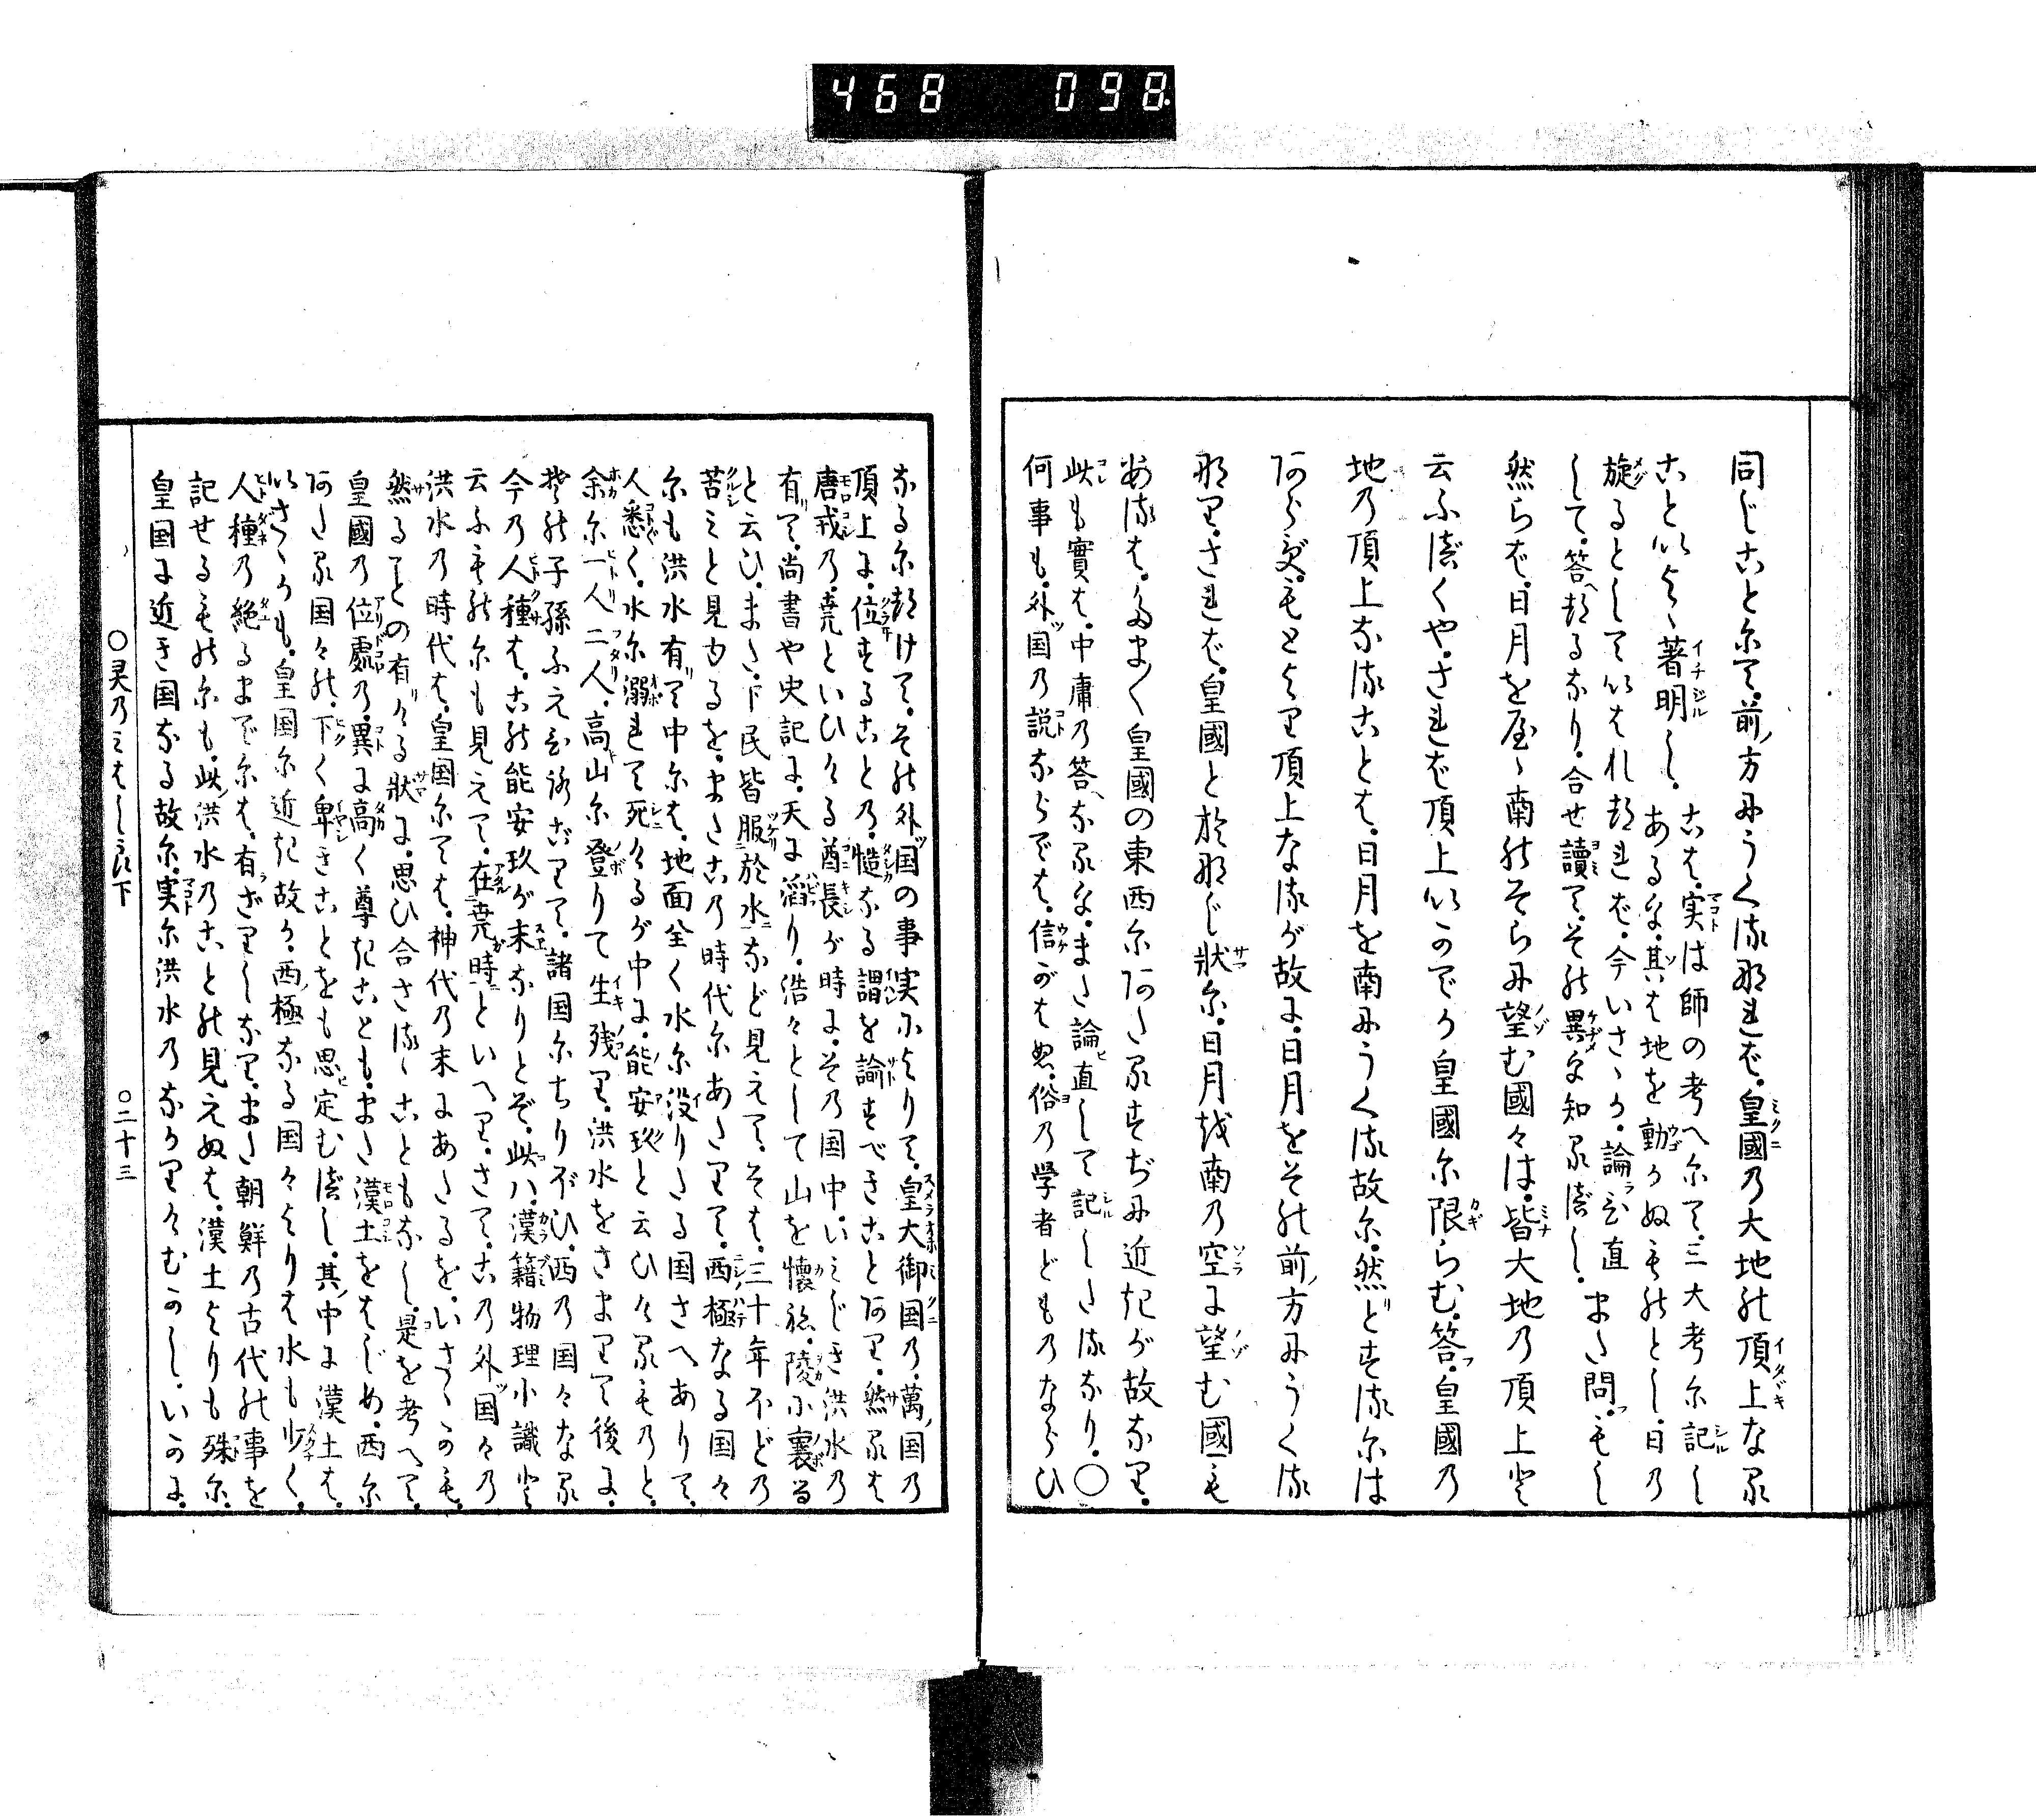 468 098
同じことにて前ノ方にうくるなれば皇國の大地の頂上なる
こといよゝ著明し
こは実は師の考へにて三大考に記し
あるを其は地を動かぬものとし日の
旋るとしていはれたれば今いさゝか論ひ直
して答へたるなり合せ讀てその異を知るべし
また問もし
然らば日月を仮ゝ南のそらに望む國々は皆大地の頂上と
云ふべくやされば頂上いかでか皇國に限らむ答皇國の
地の頂上なることは日月を南にうくる故に然りどするには
あらずもとより頂上なるが故に日月をその前ノ方にうくる
なりされば皇國とおなじ狀に日月を南の空に望む國も
あるはたま〳〵皇國の東西にあたるすぢに近きが故なり
此も實は中庸の答へなるをまた論ひ直して記したるなり○
何事も外ツ国の説ならでは信がはぬ俗の学者どものならひ
なるに就けてその外ツ国の事実によりて皇大御国の萬ノ国の
頂上に位することの慥なる謂を諭すべきことあり然るは
唐戎の尭といひける酋長が時にその国中いみじき洪水の
有て尚書や史記に天に滔り浩々として山を懷ね陵に襄る
と云ひまた下民皆服於水など見えてそは三十年ほどの
苦みと見ゆるをまたこの時代にあたりて西極なる国々
にも洪水有て中には地面全く水に没りたる国さへありて
人悉く水に溺れて死けるが中に能安玖と云ひけるものと
余に一人二人高山に登りて生残り洪水をさまりて後に
その子孫ふえひろごりて諸国にちりぼひ西の国々なる
今の人種はこの能安玖が末なりとぞ此ハ漢籍物理小識と
云ふものにも見えて在尭時といへりさてこの外ツ国々の
洪水の時代は皇国にては神代の末にあたるをいさゝかも
然ることの有ける狀に思ひ合さるゝこともなし是を考へて
皇國の位處の異に高く尊きこともまた漢土をはじめ西に
あたる国々の下く卑きことをも思ひ定むべし其ノ中に漢土は
いさゝかも皇国に近き故か西ノ極なる国々よりは水も少く
人種の絶るまでには有ざりしなりまた朝鮮の古代の事を
記せるものにも此ノ洪水のことの見えぬは漢土よりも殊に
皇国に近き国なる故に実に洪水のなかりけむかしいかに
○灵乃みはしら下 ○二十三